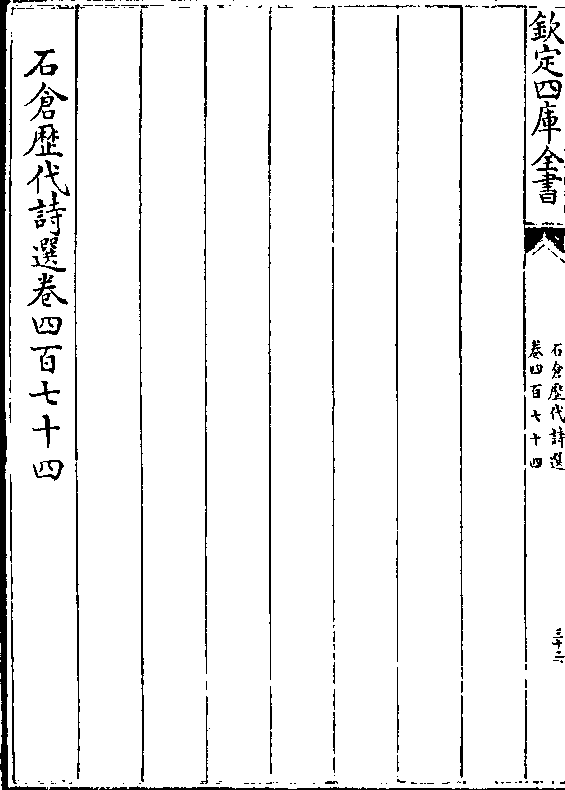 欽定四庫全書
石倉歷代詩選
卷四百七十四
三十二
石倉歷代詩選卷四百七十四